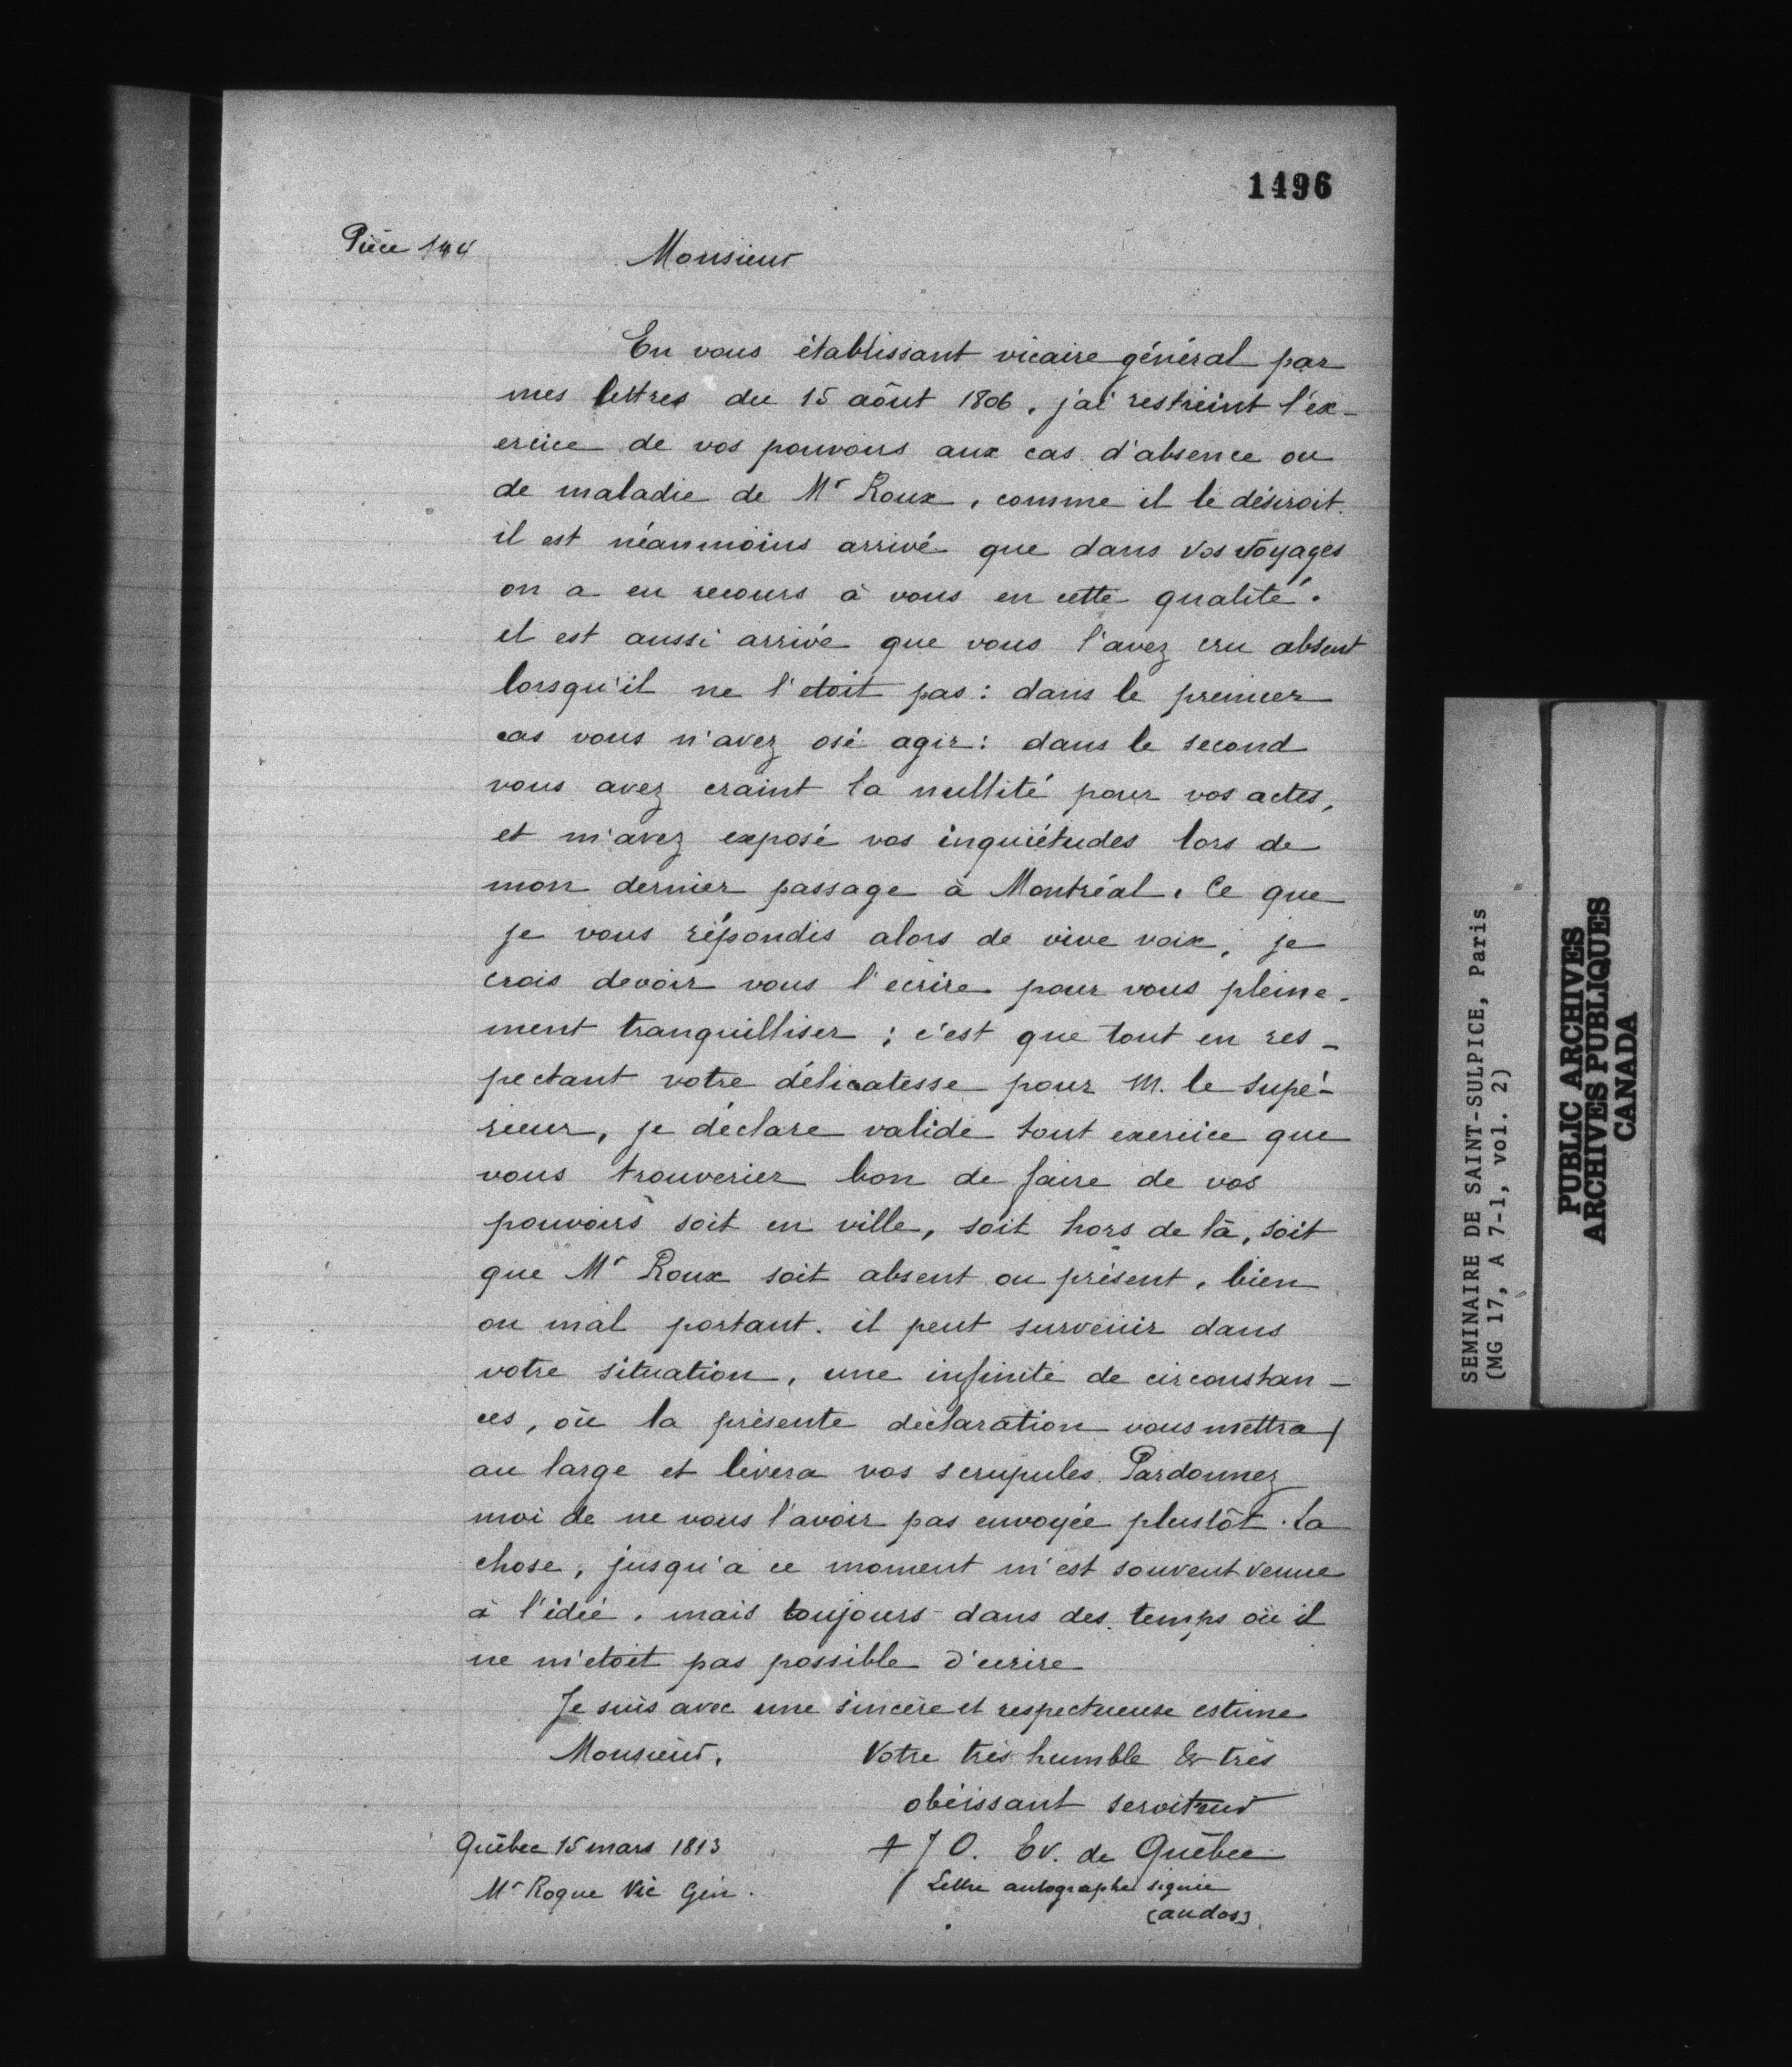 1496
Pièce 144
Monsieur
En vous établissant vicaire général par
mes lettres du 15 aôut 1806, j'ai restreint l'ex-
ercice de vos pouvoirs aux cas d'absence ou
de maladie de Mr Roux, comme il le désiroit.
il est néanmoins arrivé que dans vos voyages
on a eu recours à vous en cette qualité.
il est aussi arrivé que vous l'avez cru absent
lorsqu'il ne l'etoit pas: dans le premier
cas vous n'avez osé agir: dans le second
vous avez craint la nullité pour vos actes,
et m'avez exposé vos inquiétudes lors de
mon dernier passage à Montréal. Ce que
je vous répondis alors de vive voix, je
crois devoir vous l'écrire pour vous pleine-
ment tranquilliser; c'est que tout en res-
pectant votre délicatesse pour M. le Supé-
rieur, je déclare valide tout exercice que
vous trouverier bon de faire de vos
pouvoirs soit en ville, soit hors de là, soit
que Mr Roux soit absent ou présent, bien
ou mal portant. il peut survenir dans
votre situation, une infinité de circonstan-
ces, où la présente déclaration vous mettra
au large et lèvera vos scrupules. Pardonnez
moi de ne vous l'avoir pas envoyée plustôt. La
chose, jusqu'à ce moment m'est souvent venue
à l'idée, mais toujours dans des temps où il
ne m'etoit pas possible d'écrire
Je suis avec une sincère et respectueuse estime
Monsieur,
Votre très humble & très
obéissant serviteur
Québec 15 mars 1813
+ J O. Ev. de Québec
Mr Roque Vic Gén.
(Lettre autographe signée
(au dos)
SEMINAIRE DE SAINT-SULPICE, Paris
(MG 17, A 7-1, vol. 2)
PUBLIC ARCHIVES
ARCHIVES PUBLIQUES
CANADA